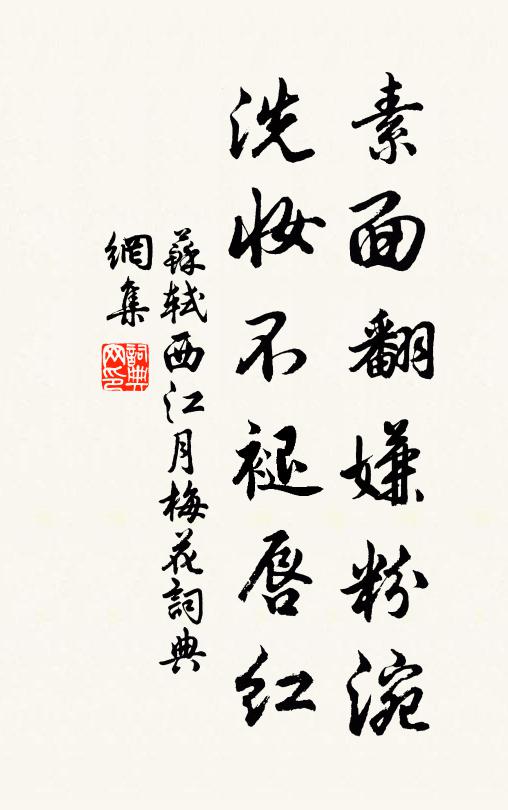 素面翻嫌粉涴
洗妆不褪唇红
蘇軾西江月梅花詞典
網集
詞典
网印